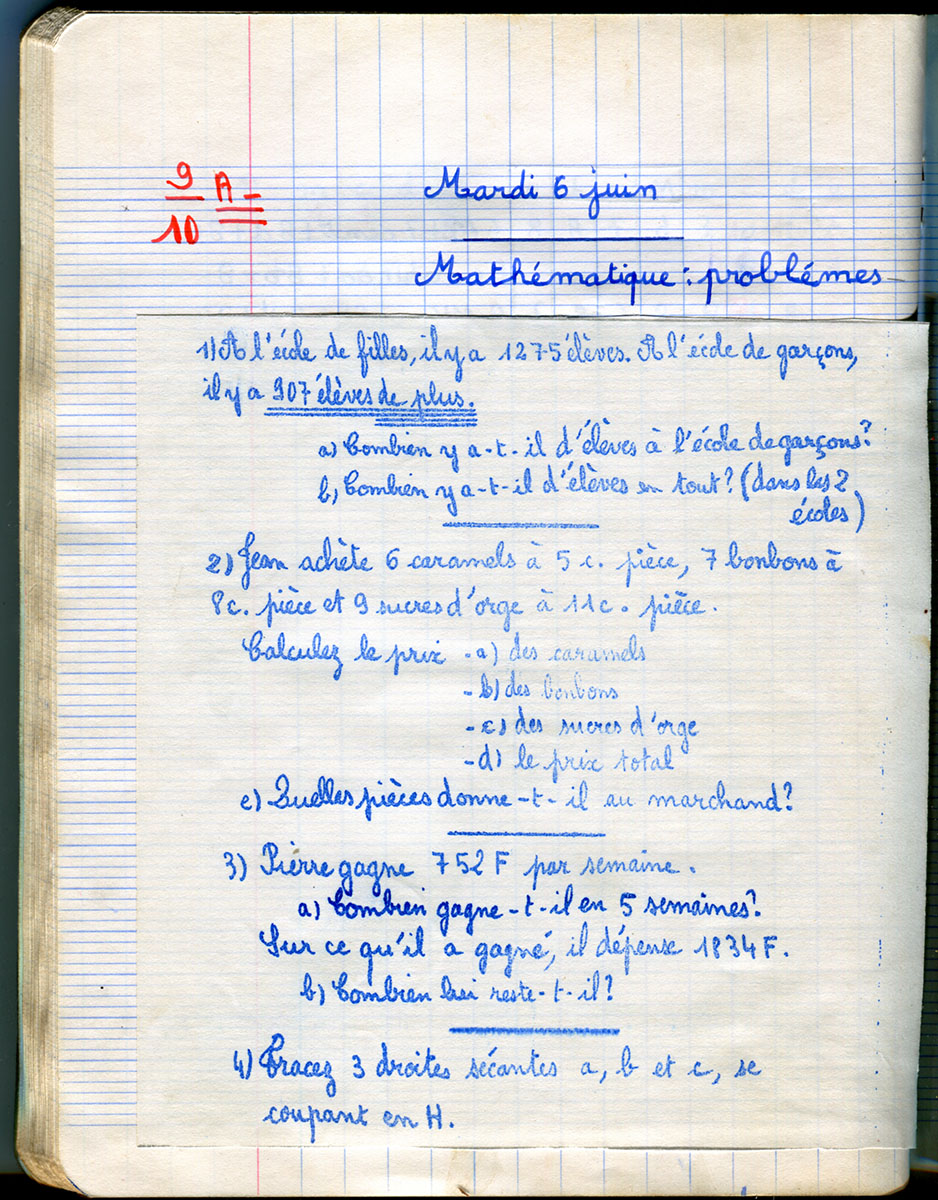 9 A-
10
Mardi 6 juin
Mathématique : problémes
1) A l'école de filles, il y a 1275 élèves. A l'école de garçons,
il y a 907 élèves de plus.
a) Combien y a-t-il d'élèves à l'école de garçons?
b) Combien y a-t-il d'élèves en tout? (dans les 2
écoles)
2) Jean achète 6 caramels à 5 c. pièce, 7 bonbons à
8c. pièce et 9 sucres d'orge à 11c. pièce.
Calculez le prix - a) des caramels
- b) des bonbons
- c) des sucres d'orge
- d) le prix total
e) Quelles pièces donne-t-il au marchand?
3) Pierre gagne 752 F par semaine.
a) Combien gagne-t-il en 5 semaines?
Sur ce qu'il a gagné, il dépense 1834 F.
b) Combien lui reste-t-il?
4) Tracez 3 droites sécantes a, b et c, se
coupant en H.